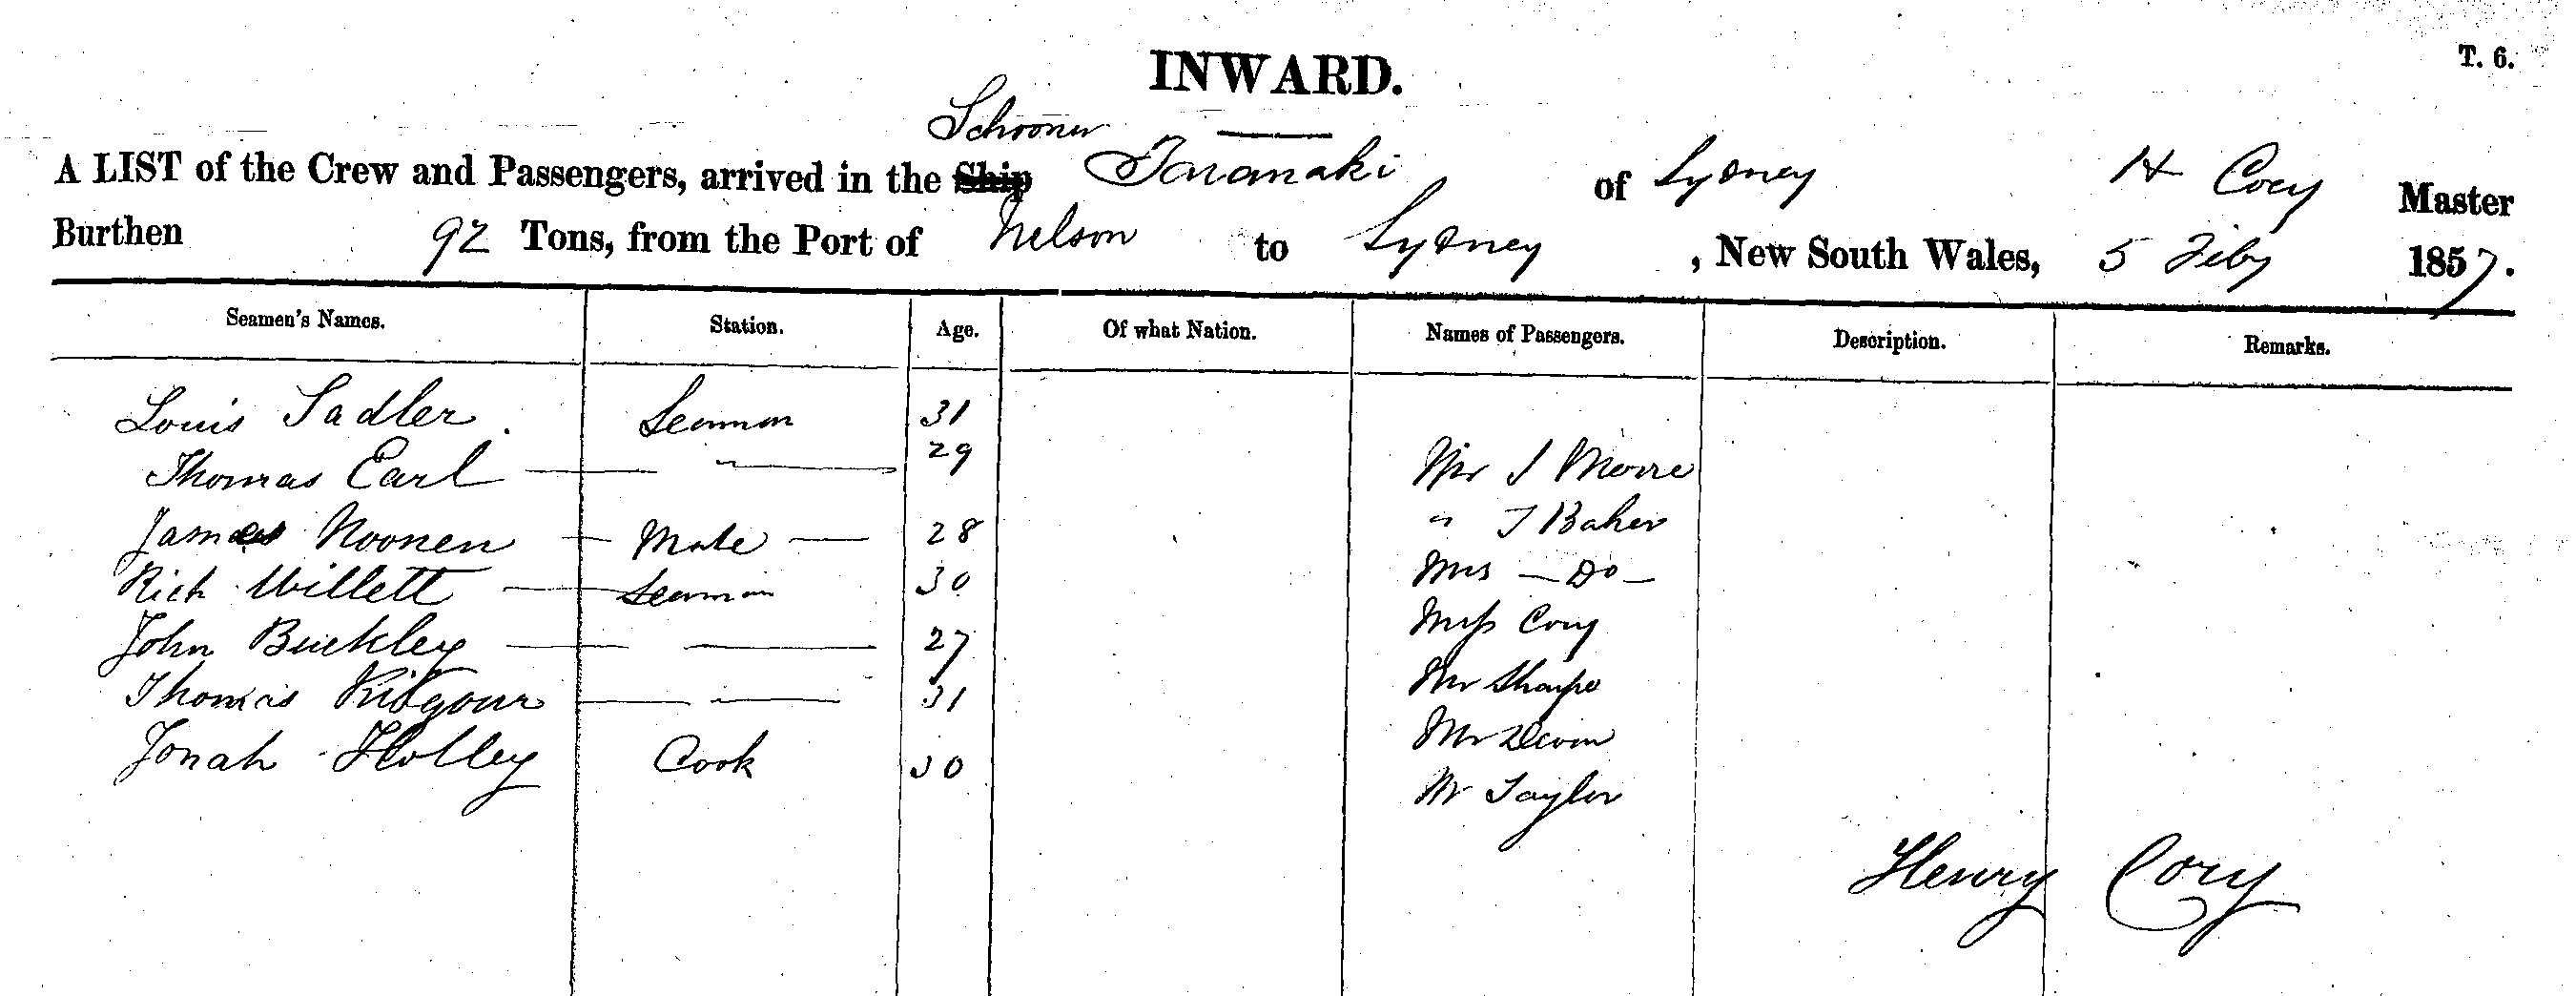 T. 6.
INWARD.
Schooner
A LIST of the Crew and Passengers, arrived in the Ship Taranaki of Sydney H Cory Master
Burthen 92 Tons, from the Port of Nelson to Sydney , New South Wales, 5 Feby 1857.
Seamen's Names. Station. Age. Of what Nation. Names of Passengers. Description. Remarks.
Louis Sadler. Seaman 31
Thomas Earl — " — 29 Mr J Moore
James Noonen — Mate — 28 " T Baker
Rich Willett — Seaman 30 Mrs — Do —
John Buckley — — 27 Miss Cory
Thomas — — 31 Mr Sharpe
Jonah Holley Cook 30 Mr
Mr Taylor
Henry Cory